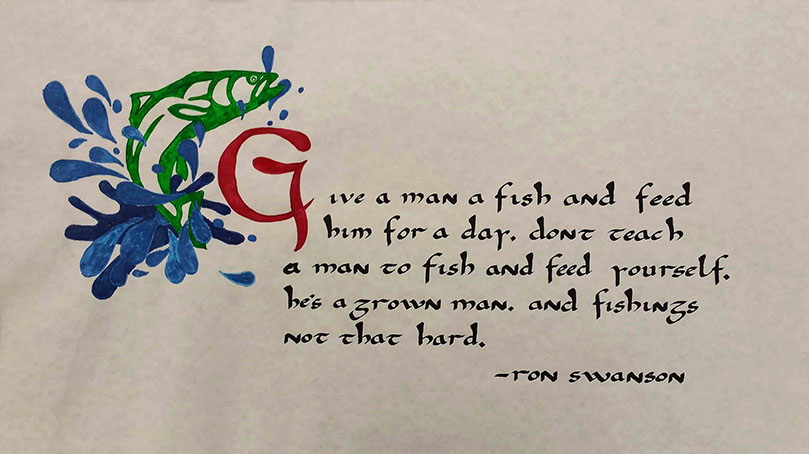 Give a man a fish and feed
him for a day. dont teach
a man to fish and feed yourself.
he's a grown man. and fishings
not that hard.
-ron swanson